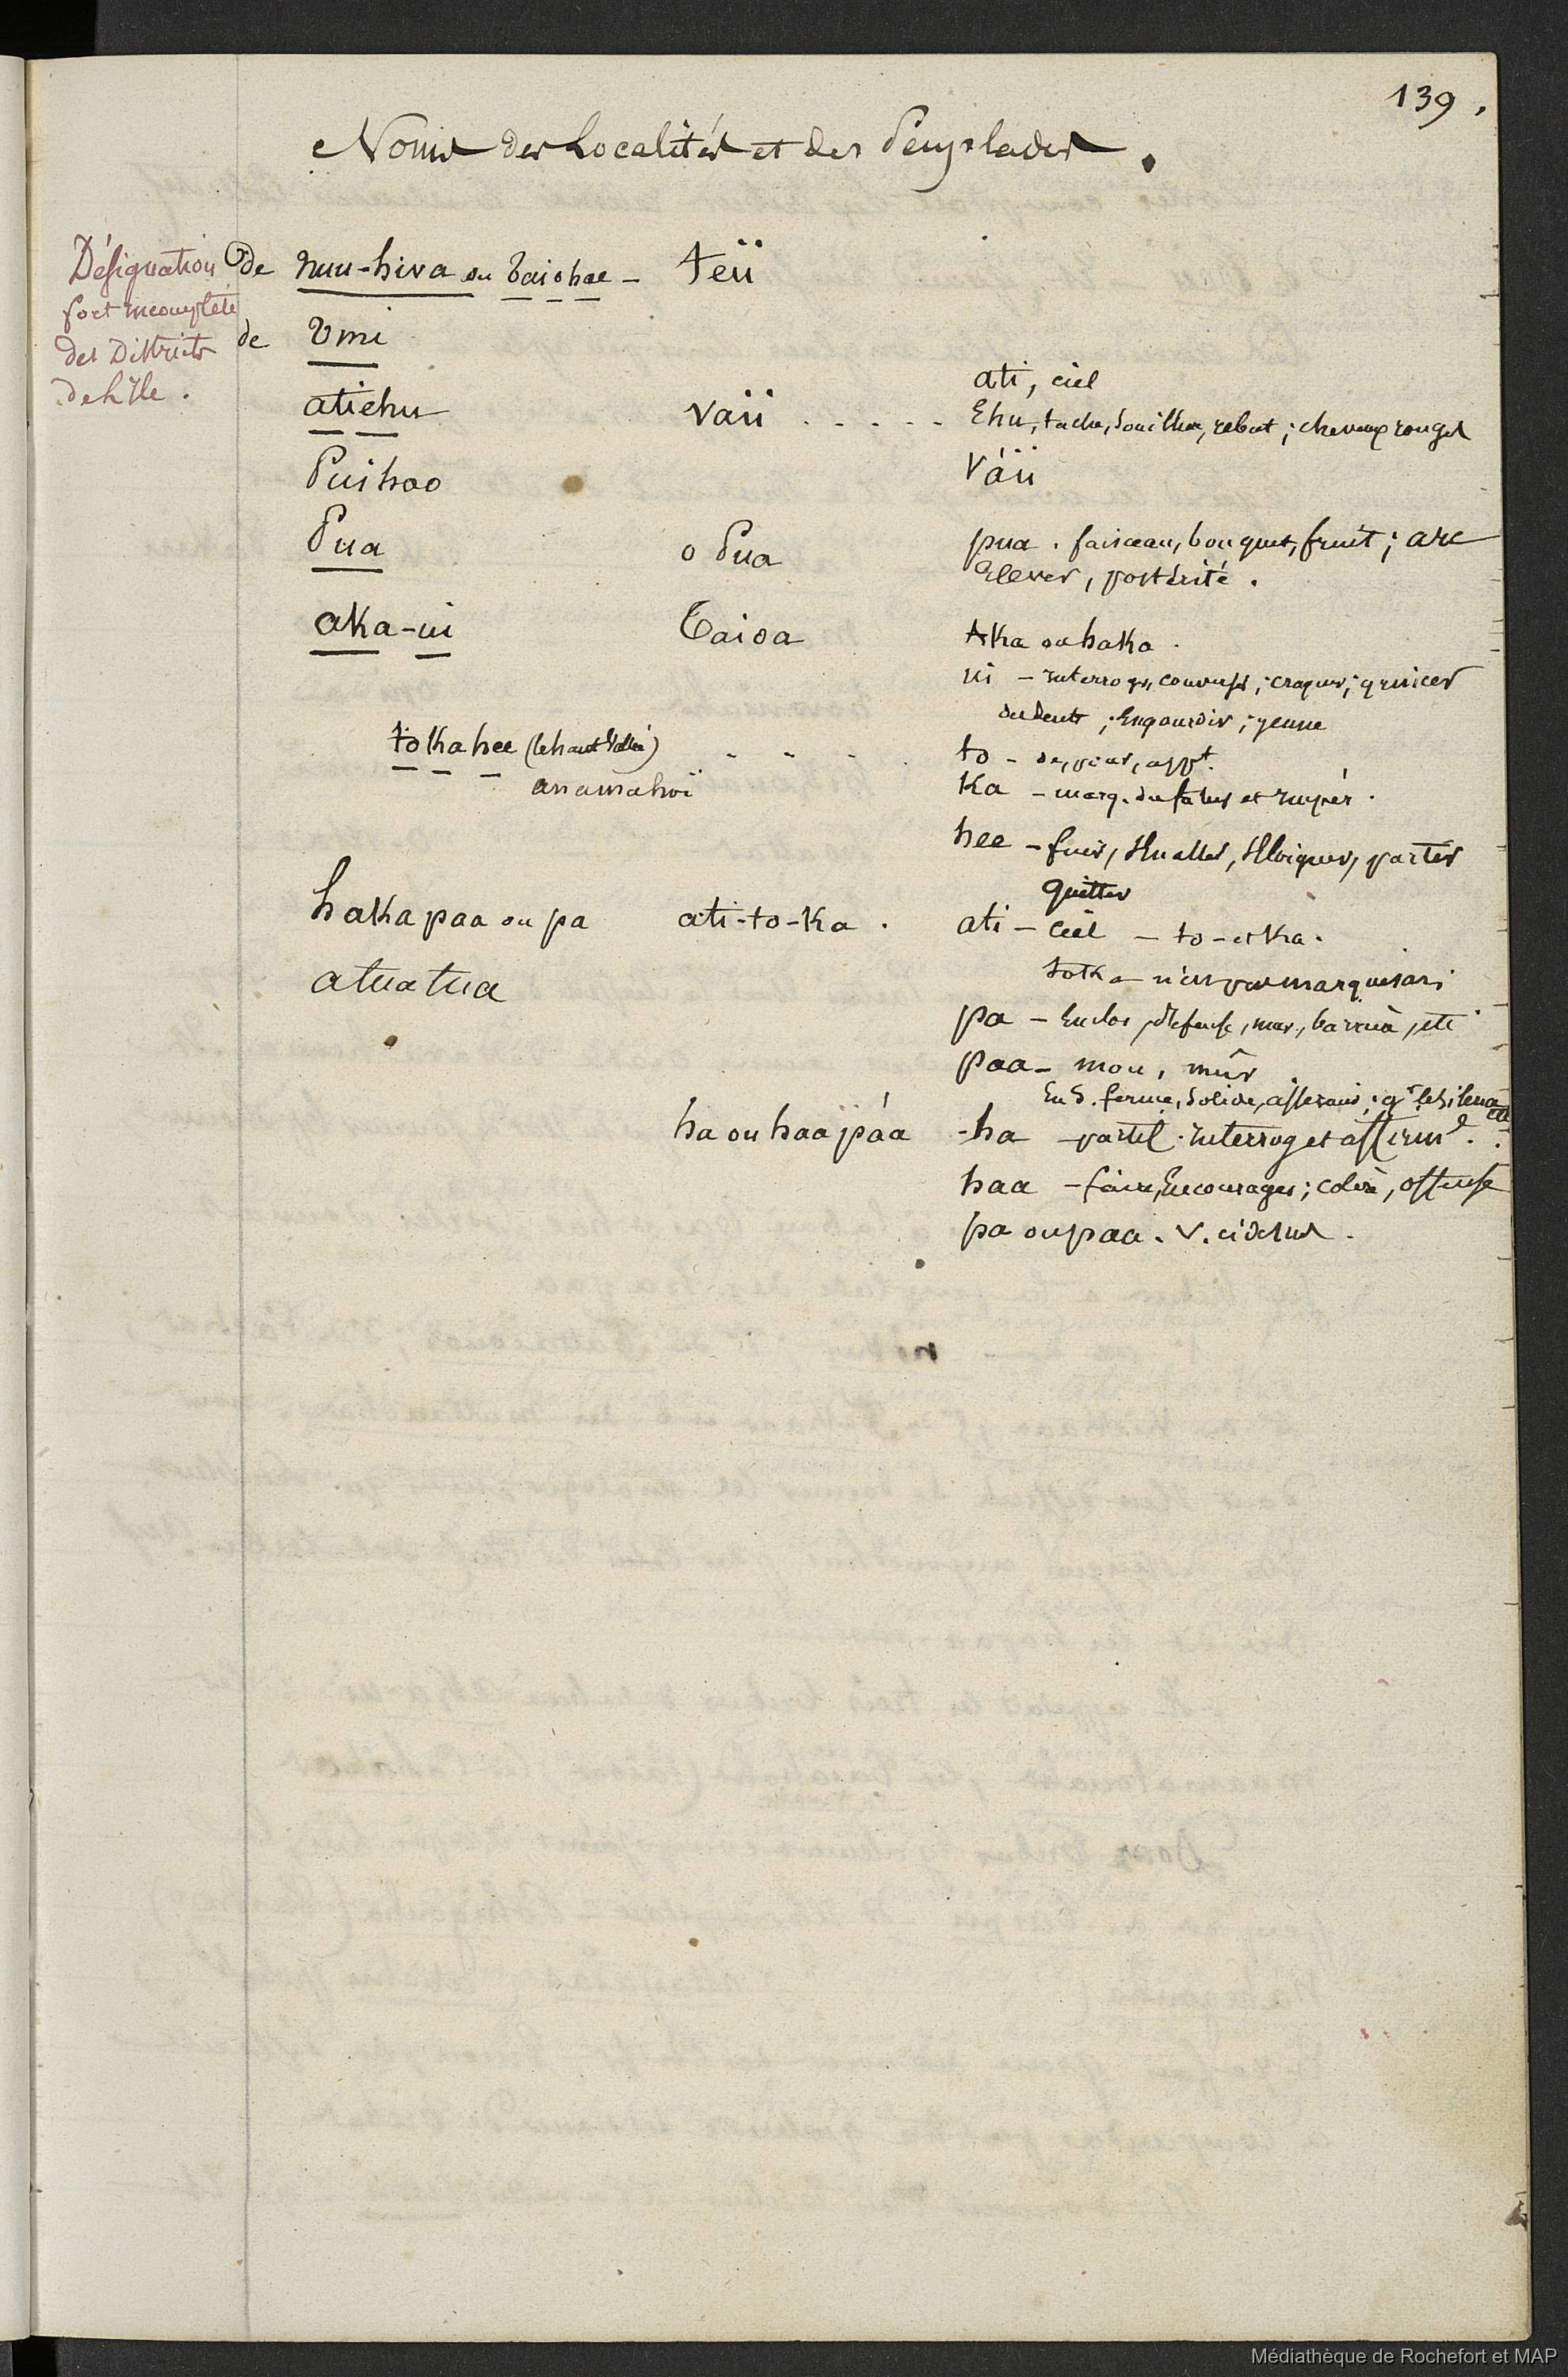 139.
Noms des Localités et des Peuplades.
Désignation
fort incomplète
des Districts
de l'île.
de nuu-hiva ou taiohae - teii
de Umi
ati, ciel
atiehu vaii . . . . . Ehu, tache, souiller, rebut; cheveux rouges
Puihoo Váii
Pua o Pua pua. faisceau, bouquet, fruit; arc
Elever, postérité.
aka-ui Taioa Aka ou haka.
ui - interroger, ; craquer; grincer
des dents; Engourdir; jeune
to ka hee (le haut Vallée) - - - . to - de, pour, appt.
anamahoï ka - marq. du futur et impér.
hee - fuir, s'en aller, s'éloigner, partir
quitter
hakapaa ou pa ati-to-ka. ati - ciel - to - et ka.
atuatua toka n'est pas marquisan;
pa - Enclos, défense, mur, barrière, etc
paa - mou, mûr
En S. ferme, solide, ;
ha ou haa páa -ha - partic. interrog et affirm.
haa - faire, Encourager; colère, offense
pa ou paa. v. ci dessus.
Médiathèque de Rochefort et MAP